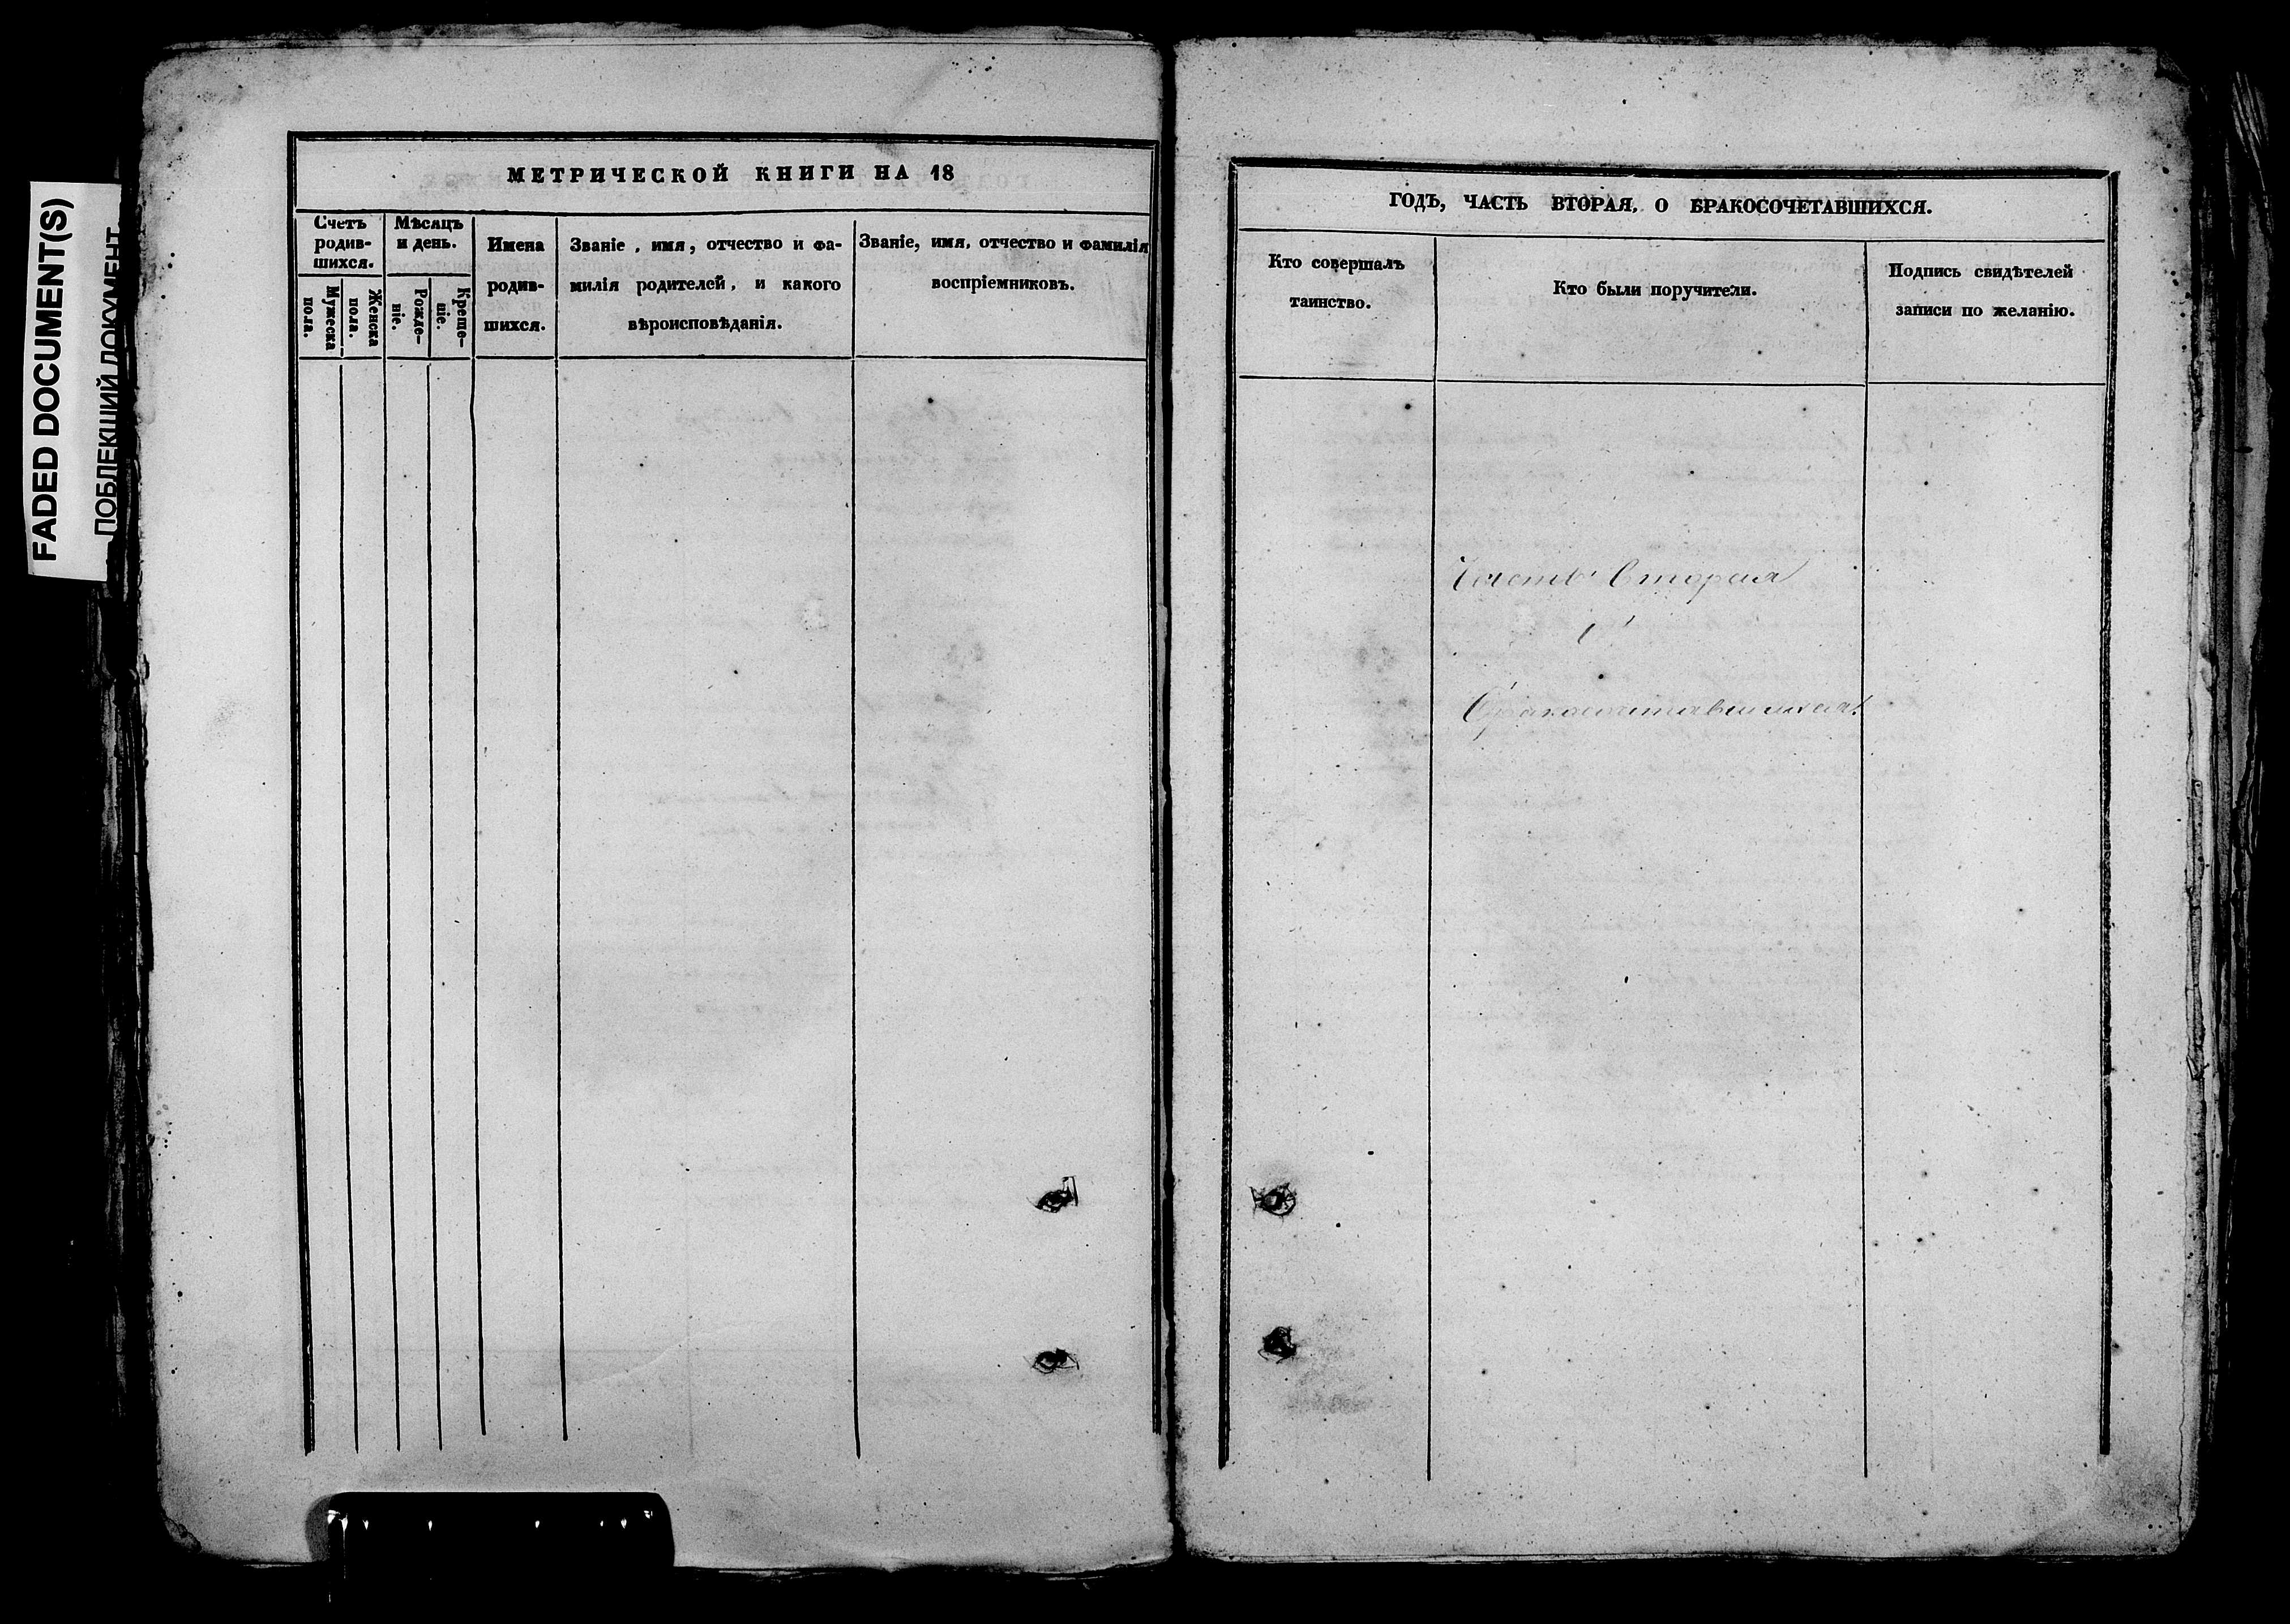 FADED DOCUMENT(S)
ПОБЛЕКШИЙ ДОКУМЕНТ
МЕТРИЧЕСКОЙ КНИГИ НА 18
Счетъ
родив-
шихся.
Мужеска
пола.
Женска
пола.
Мѣсяцъ
и день.
Рожде-
ніе.
Креще-
ніе.
Имена
родив-
шихся.
Званіе, имя, отчество и фа-
милія родителей, и какого
вѣроисповѣданія.
Званіе, имя, отчество и фамилія
воспріемниковъ.
ГОДЪ, ЧАСТЬ ВТОРАЯ, О БРАКОСОЧЕТАВШИХСЯ.
Кто совершалъ
таинство.
Кто были поручители.
Подпись свидѣтелей
записи по желанію.
Часть Вторая
О
Бракосочетавшихся.